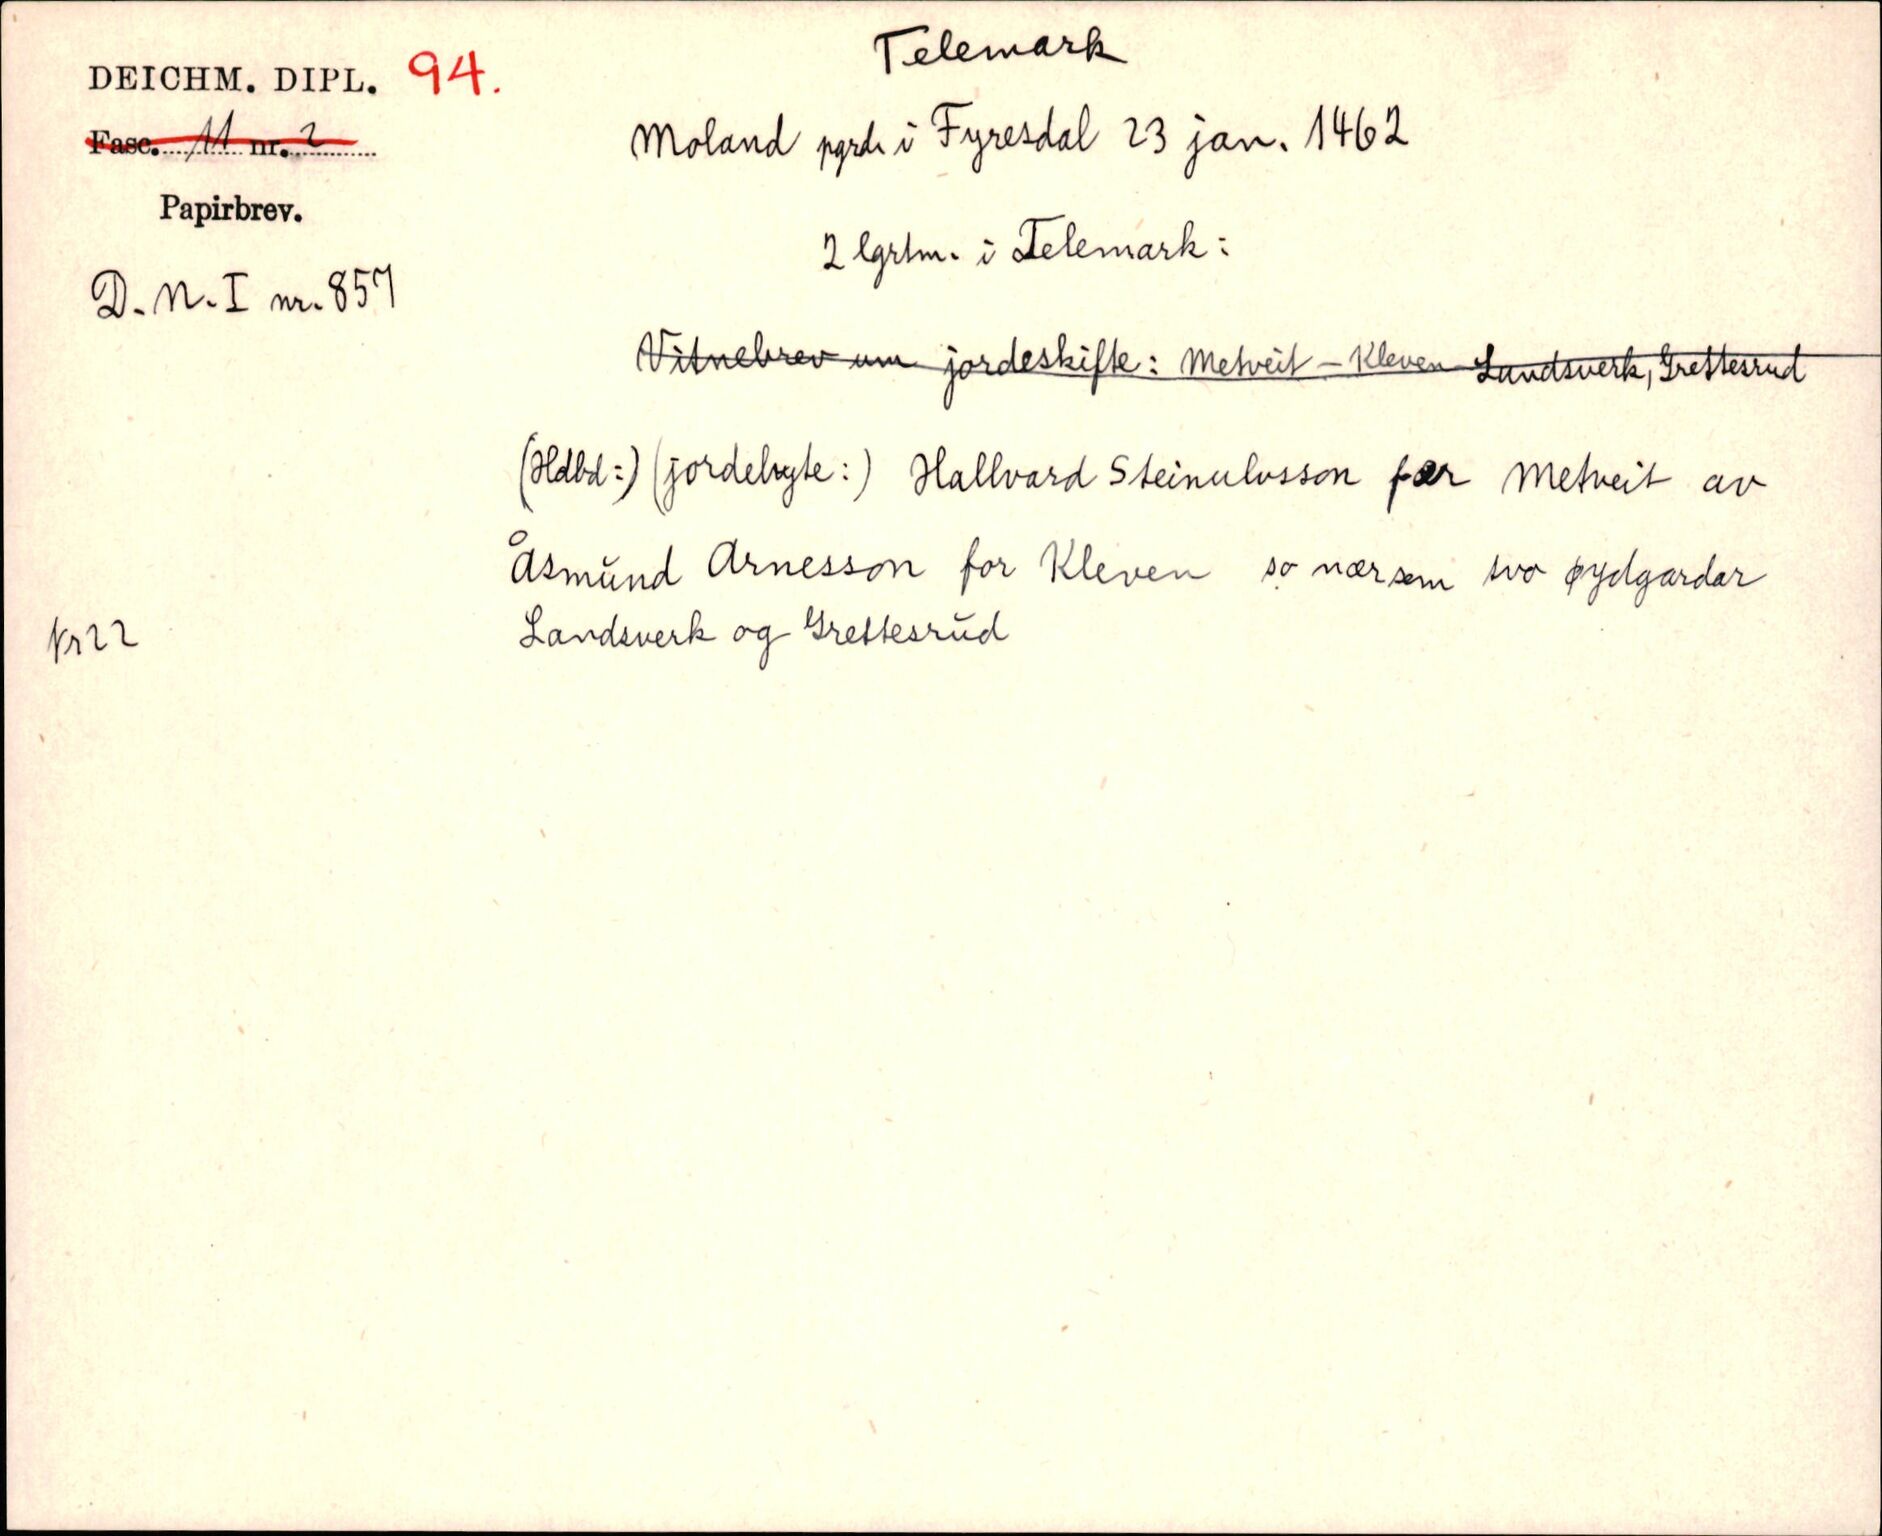 Telemark
DEICHM. DIPL. 94.
Fasc. 11 nr. 2
Moland pgrd. i Fyresdal 23 jan. 1462
Papirbrev.
2 lgrtm. i Telemark:
D. N. I nr. 857
Vitnebrev um jordeskifte: Metveit - Kleven Landsverk, Grettesrud
(Hdbd:) (jordebyte:) Hallvard Steinulvsson fær Metveit av
Åsmund Arnesson for Kleven so nær som tvo øydgardar
Landsverk og Grettesrud
Nr 22